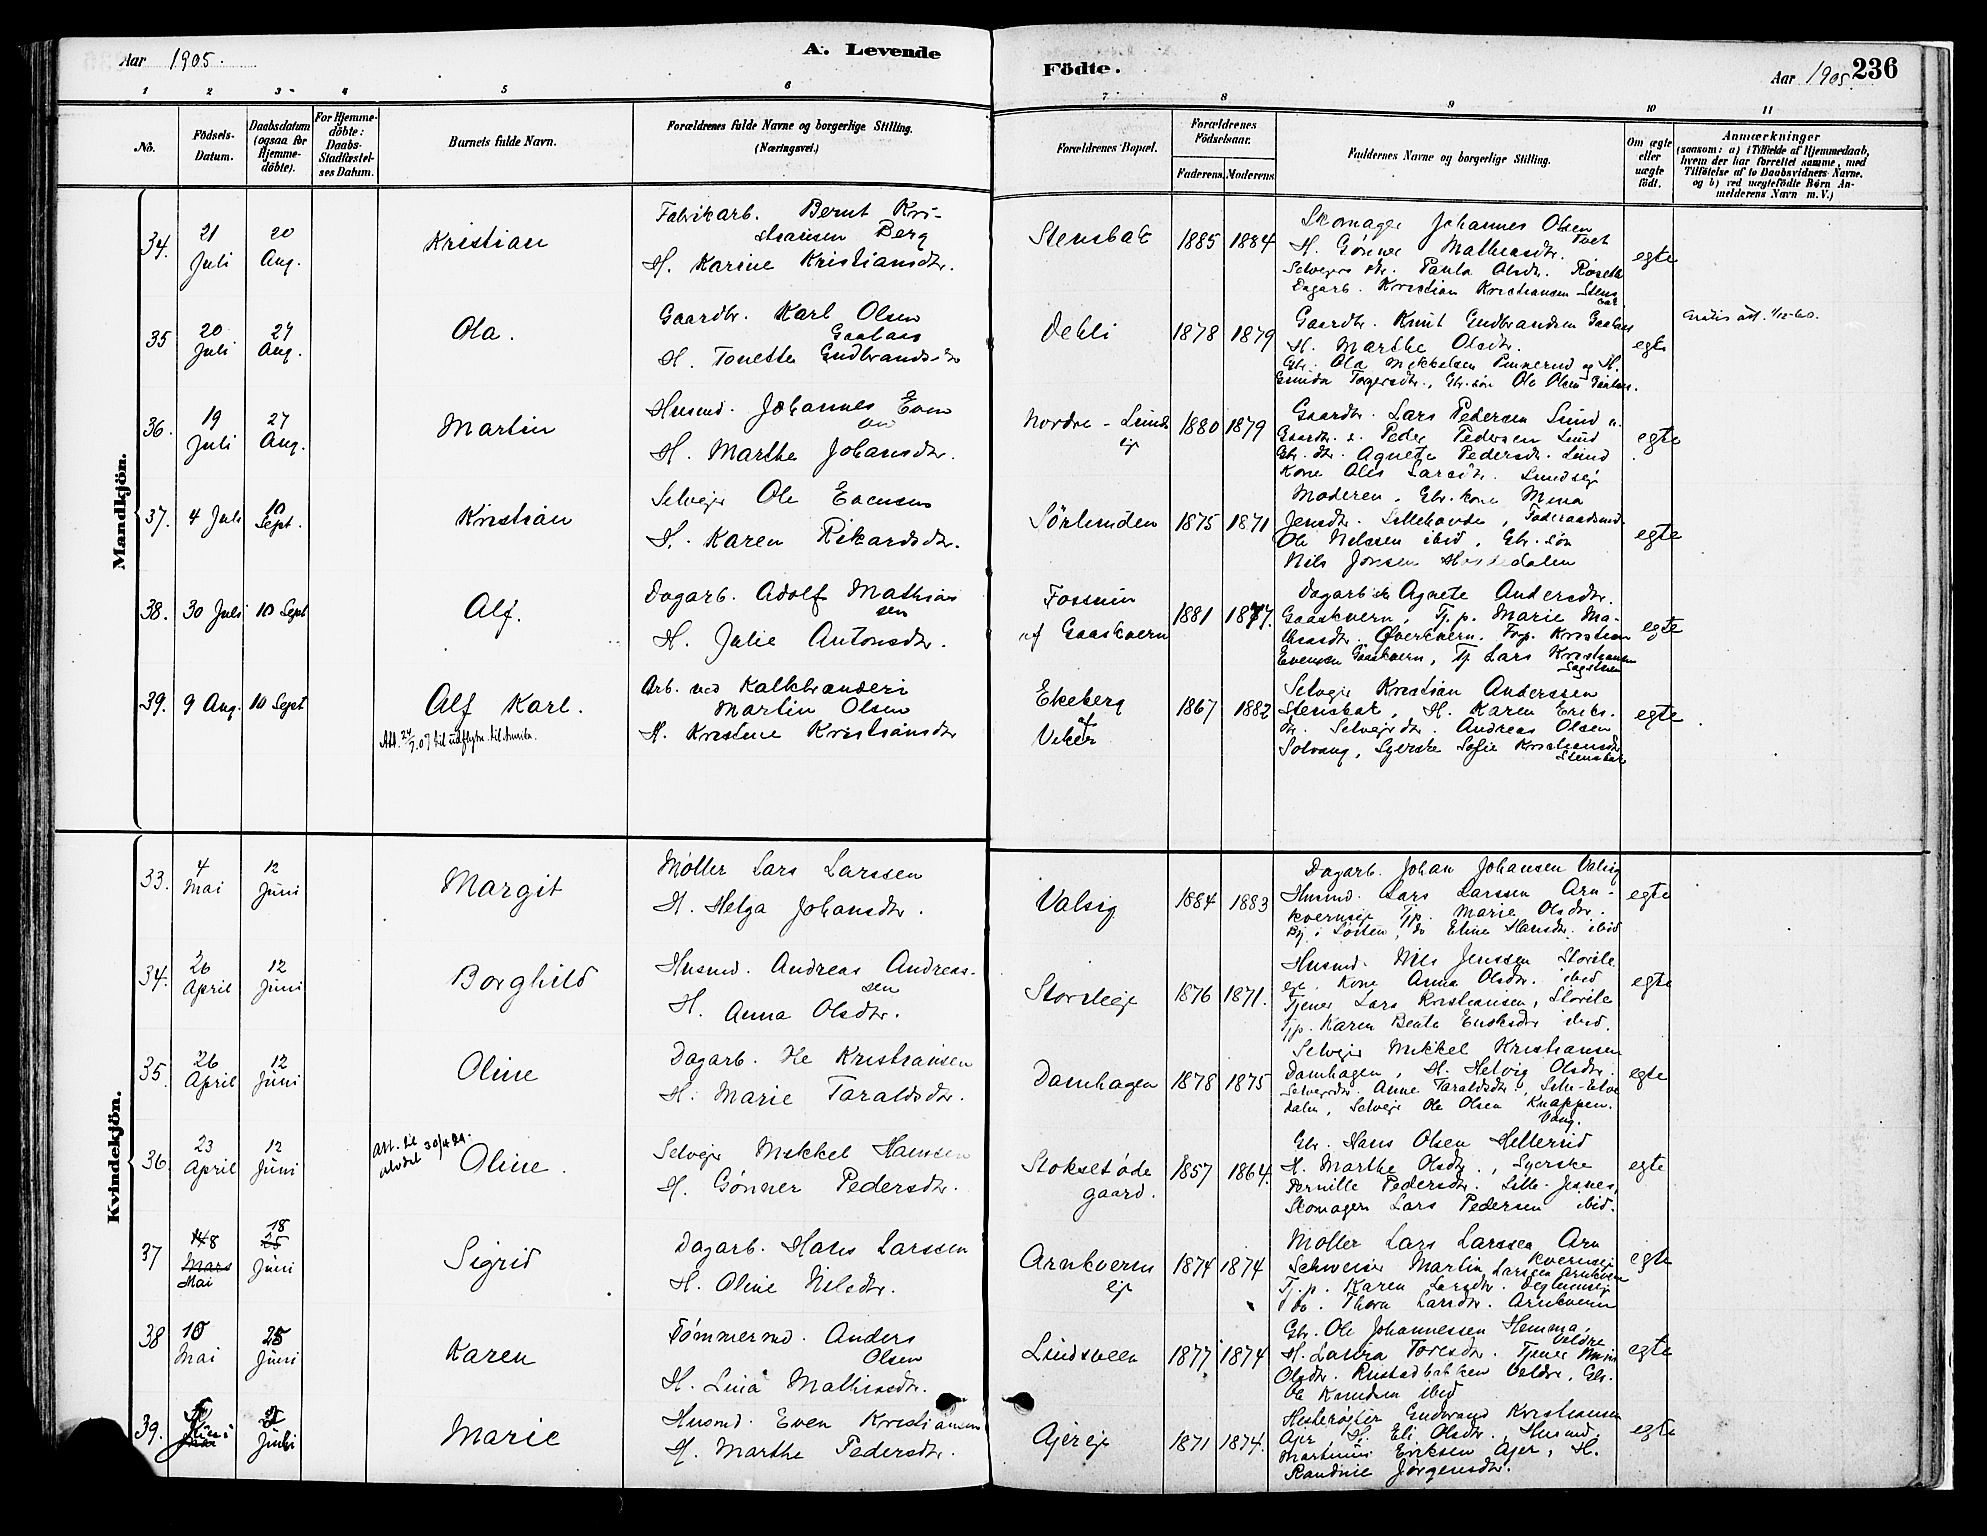 Aar 1905. A. Levende
Födte. Aar 1905. 236
1 2 3 4 5 6 7 8 9 10 11
No.
Födsels-
Datum.
Daabsdatum
(ogsaa for
Hjemme-
döbte).
For Hjemme-
döbte:
Daabs-
Stadfæstel-
ses Datum.
Barnets fulde Navn.
Forældrenes fulde Navne og borgerlige Stilling.
(Næringsvei.)
Forældrenes Bopæl.
Forældrenes
Födselsaar.
Faderens. Moderens.
Faddernes Navne og borgerlige Stilling.
Om ægte
eller
uægte
födt.
Anmærkninger
(saasom: a) i Tilfælde af Hjemmedaab,
hvem der har forrettet samme, med
Tilföielse af to Daabsvidners Navne.
og b) ved uægtefödte Börn An-
melderens Navn m. V.)
Mandkjön.
34.
21
Juli
20
Aug.
Kristian
Fabrikarb. Bernt Kri-
stiansen Berg
H. Karine Kristiansdtr.
Stensbak
1885 1884
Skomager Johannes Olsen
Tvet
H. Gønner Matheasdtr.
Selveiers dtr. Paula Olsdtr.
Dagarb. Kristian Kristiansen Stens
bak
egte
35
20
Juli
27
Aug.
Ola.
Gaardbr. Karl Olsen
Gaalaas
H. Tonette Gudbrandsdtr
Dehli
1878 1879
Gaardbr. Knut Gudbrandsen Gaalaas
H. Marthe Olsdtr.
Gbr. Ola Mikkelsen Pinnerud og H.
Gunda Torgersdtr., Gbr. søn Ole Olsen Gaalaas.
egte
Gratis att. 1/12-60.
36.
19
Juli
27
Aug.
Martin
Husmd. Johannes Even
sen
H. Marthe Johansdtr.
Nordre-Lunds
ej
1880 1879
Gaardbr. Lars Pedersen Lund
Gaardbr. s. Peder Pedersen Lund
Gbr. dtr. Agnete Pedersdtr. Lund
Kone Larsdtr. Lundsej
egte
37.
4 Juli
10
Sept.
Kristian
Selvejer Ole Evensen
H. Karen Rikardsdtr.
Sørlunden
1875 1871
Moderen, Gbr. kone Mina
Jensdtr. Lillehovde, Føderaadsmd.
Ole Nilssen ibid, Gbr. søn
Nils Jonsen
egte
38.
30 Juli
10 Sept
Alf.
Dagarb. Adolf Mathias
sen
H. Julie Antonsdtr.
Fossum
af Gaaskvern
1881 1877.
Dagarbske Agnete Andersdtr.
Gaaskvern, Tj. p. Marie Ma-
thiasdtr. Øverkvern. Kristian
Evensen Gaaskvern, Tj Lars Kristiansen
egte
39.
9 Aug.
10 Sept
Alf Karl.
Att. 24/7.07 til udflytn. til
Arb. ved Kalkbrænderi
Martin Olsen
H. Kristine Kristiansdtr
Ekeberg
af
Veker
1867 1882
Selvejer Kristian Anderssen
Stensbak, H. Karen Eriks-
dtr. Selvejerdtr. Andreas Olsen
Solvang, Syerske Sofie Kristiansdtr
Stensbak
egte.
Kvindekjön.
33.
4
Mai
12
Juni
Margit
Møller Lars Larssen
H. Helga Johansdtr.
Valsig
1884 1883
Dagarb. Johan Johansen Valsig
Husmd. Lars Larssen Arn-
kvernseje Tjp. Marie Olsdtr.
Eline Hansdtr. ibid
egte
34.
26
April
12
Juni
Borghild
Husmd. Andreas Andreas-
sen
H. Anna Olsdtr.
Storileje
1876 1871.
Husmd. Nils Jenssen Storile
eje. Kone Anna Olsdtr. ibid
Tjener Lars Kristiansen, Storile
Tjp. Karen Beate ibid.
egte
35.
26
April
12
Juni
Oline
Dagarb. Kristiansen
H. Marie Taraldsdtr.
Damhagen
1878 1875
Selvejer Mikkel Kristiansen
Damhagen, H. Helvig Olsdtr.
Selvejerdtr. Anne Taraldsdtr.,
dalen, Selvejer Ole Olsen Knappen.
Vang.
egte
36.
23
April
12
Juni
Att. til 30/4 24.
Oline.
Selvejer Mikkel Hanssen
H. Gønner Pedersdtr.
Stoksetøde
gaard.
1857 1864.
Gbr. Hans Olsen Hellerud
H. Marthe Olsdtr., Syerske
Pernille Pedersdtr. Lille-Jesnes,
Skomager Lars Pedersen ibid.
egte
37
8
Mars
Mai
18
25
Juni
Sigrid
Dagarb. Hans Larssen
H. Oline Nilsdtr.
Arnkverns
ej
1874 1874
Møller Lars Larssen Arn
kvernsej
Schweiser Martin Larssen Arnkvern
Tj. p. Karen Larsdtr.
do. Thora Larsdtr. Arnkvern
egte
38
15
Mai
25
Juni
Karen
Tømmermd. Anders
Olsen
H. Lina Mathiasdtr.
Lindsveen
1877 1874
Gbr. Ole Johannessen Hemma,
Veldre
H. Laura Toresdtr. Tjener
Olsdtr. Rustadbakken Veldre, Gbr.
Ole Knudsen ibid
egte
39.
Juni
Juli
Marie
Husmd. Even Kristiansen
H. Marthe Pedersdtr.
Ajerej
1871 1874.
Hesterøgter Gudbrand Kristiansen
Ajer, H. Eli Olsdtr., Husmd.
Martinus Eriksen Ajer, H.
Randine Jørgensdtr.
egte